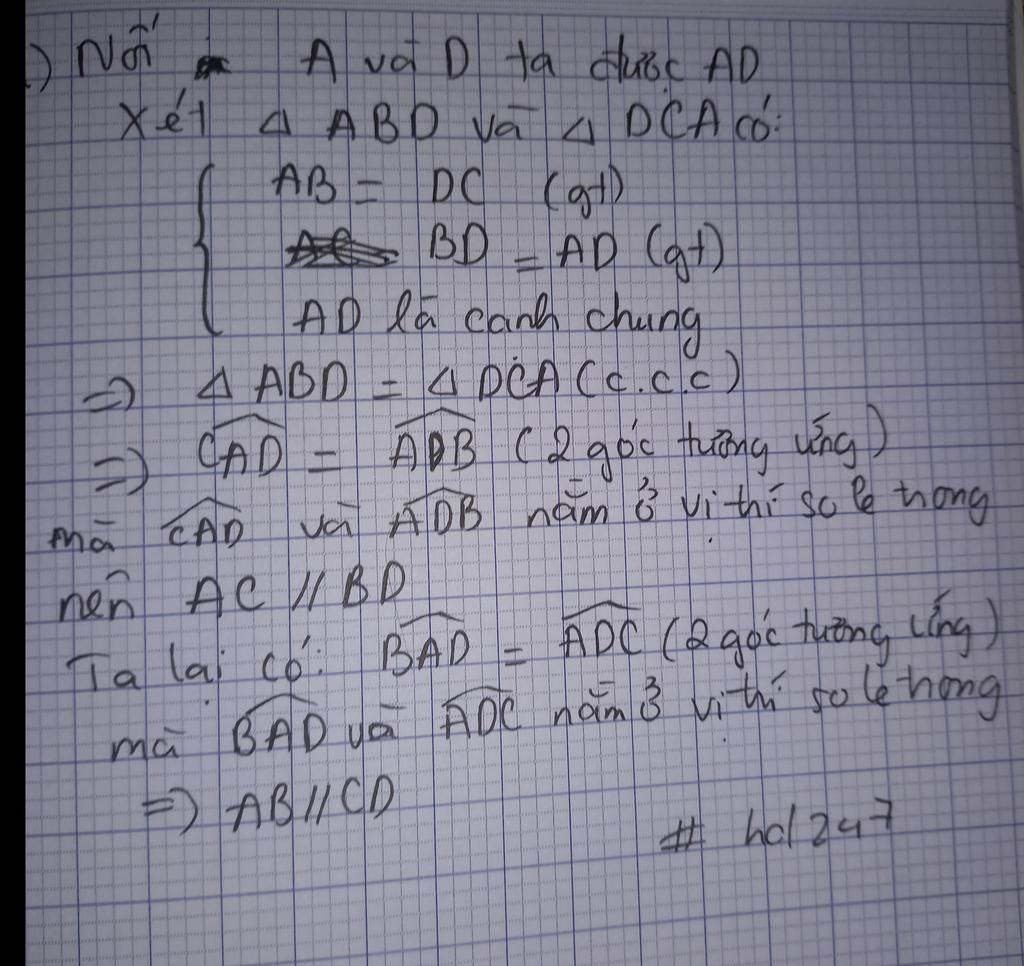 ) Nối A và D ta được AD
Xét Δ ABD và Δ DCA có:
AB = DC (gt)
BD = AD (gt)
AD là cạnh chung
=> Δ ABD = Δ DCA (c.c.c)
=> \widehat{CAD} = \widehat{ADB} (2 góc tương ứng)
mà \widehat{CAD} và \widehat{ADB} nằm ở vị trí so le trong
nên AC // BD
Ta lại có: \widehat{BAD} = \widehat{ADC} (2 góc tương ứng)
mà \widehat{BAD} và \widehat{ADC} nằm ở vị trí so le trong
=> AB // CD
# hd247